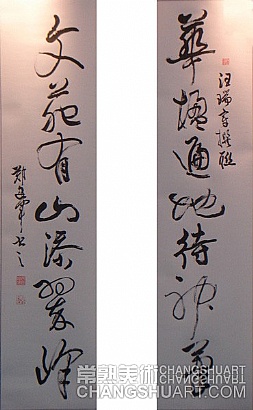 華楹遍地待神筆
汪瑞章撰联
文苑有山添翠峰
书之
常熟美術 CHANGSHUART
CHANGSHUART